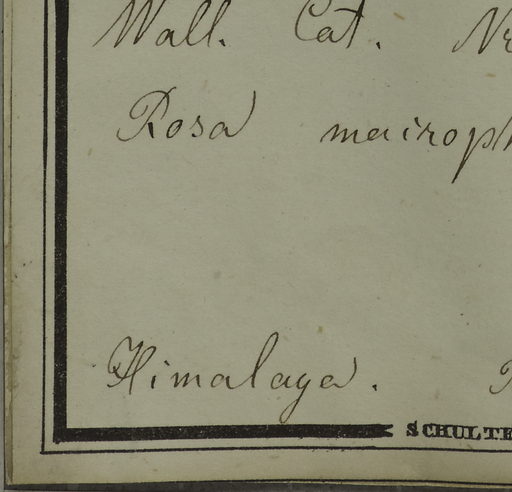 Wall. Cat. Nr
Rosa macroph
Himalaya.
SCHULTE